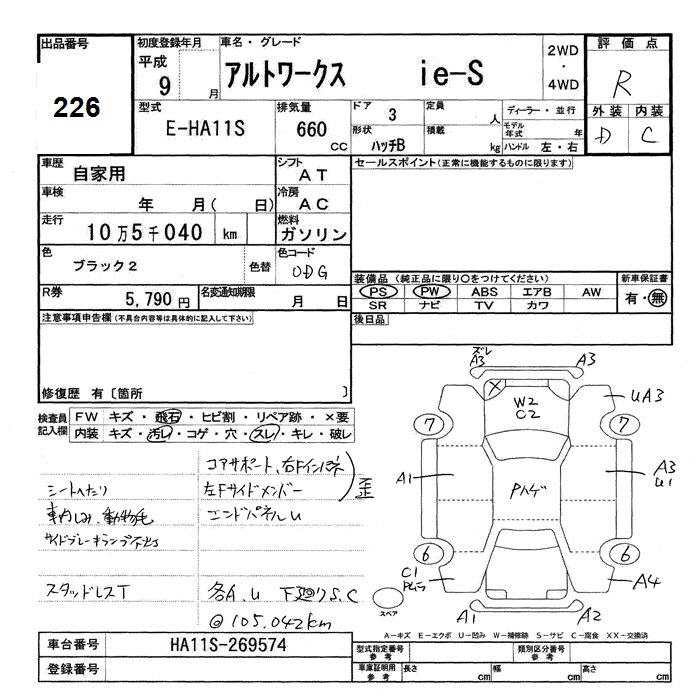 出品番号
226
初度登録年月
平成
9 月
車名・グレード
アルトワークス ie-S
2WD
・
4WD
評価点
R
外装 内装
D C
型式
E-HA11S
排気量
660 cc
ドア 3
形状 ハッチB
定員 人
積載 kg
ディーラー・並行
モデル年式 年
ハンドル 左・右
車歴 自家用
シフト AT
車検 年 月( 日)
冷房 AC
走行 10万5千040 km
燃料 ガソリン
色 ブラック2 色替
色コード
R券 5,790円
名変通知期限 月 日
セールスポイント(正常に機能するものに限ります)
装備品(純正品に限り○をつけてください)
PS PW ABS エアB AW
SR ナビ TV カワ
新車保証書
有・無
後日品
注意事項申告欄(不具合内容等は具体的に記入して下さい)
修復歴 有〔箇所 〕
検査員
記入欄
FW キズ・飛石・ヒビ割・リペア跡・×要
内装 キズ・汚レ・コゲ・穴・スレ・キレ・破レ
コアサポート、右Fインパネ
左Fサイドメンバー
歪
エンドパネルU
シートへたり
車内しみ、動物毛
サイドブレーキランプ不灯
スタッドレスT
各A.U 下廻りS.C
@105.042km
ズレ
A3
A3
X
W2
C2
UA3
7
7
A1
Pハゲ
A3
U1
6
6
C1
A4
スペア
A1
A2
A-キズ E-エクボ U-凹み W-補修跡 S-サビ C-腐食 XX-交換済
車台番号 HA11S-269574
登録番号
型式指定番号
参考
類別区分番号
参考
車庫証明用
参考
長さ cm
幅 cm
高さ cm